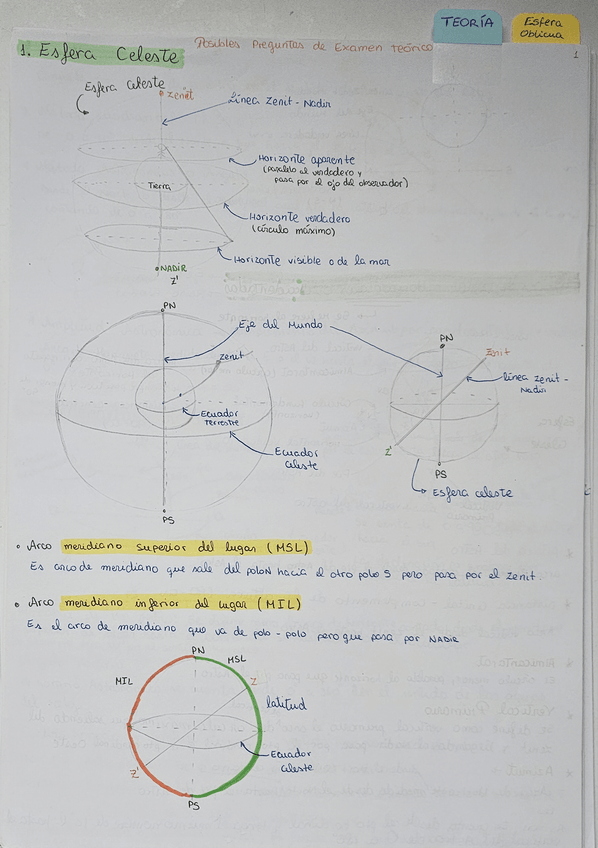 TEORÍA
Esfera
Oblicua
Posibles Preguntas de Examen Teórico
1
1. Esfera Celeste
Esfera Celeste
Zenit
Línea Zenit - Nadir
Horizonte aparente
(paralelo al verdadero y
pasa por el ojo del observador)
Tierra
Horizonte verdadero
(círculo máximo)
Horizonte visible o de la mar
NADIR
Z'
PN
Eje del Mundo
Zenit
Ecuador
terrestre
Ecuador
Celeste
PS
PN
Zenit
línea Zenit -
Nadir
Z'
PS
Esfera celeste
• Arco meridiano superior del lugar (MSL)
Es arco de meridiano que sale del polo N hacia el otro polo S pero pasa por el Zenit.
• Arco meridiano inferior del lugar (MIL)
Es el arco de meridiano que va de polo - polo pero que pasa por NADIR
PN
MSL
MIL
Z
latitud
Ecuador
Celeste
Z'
PS